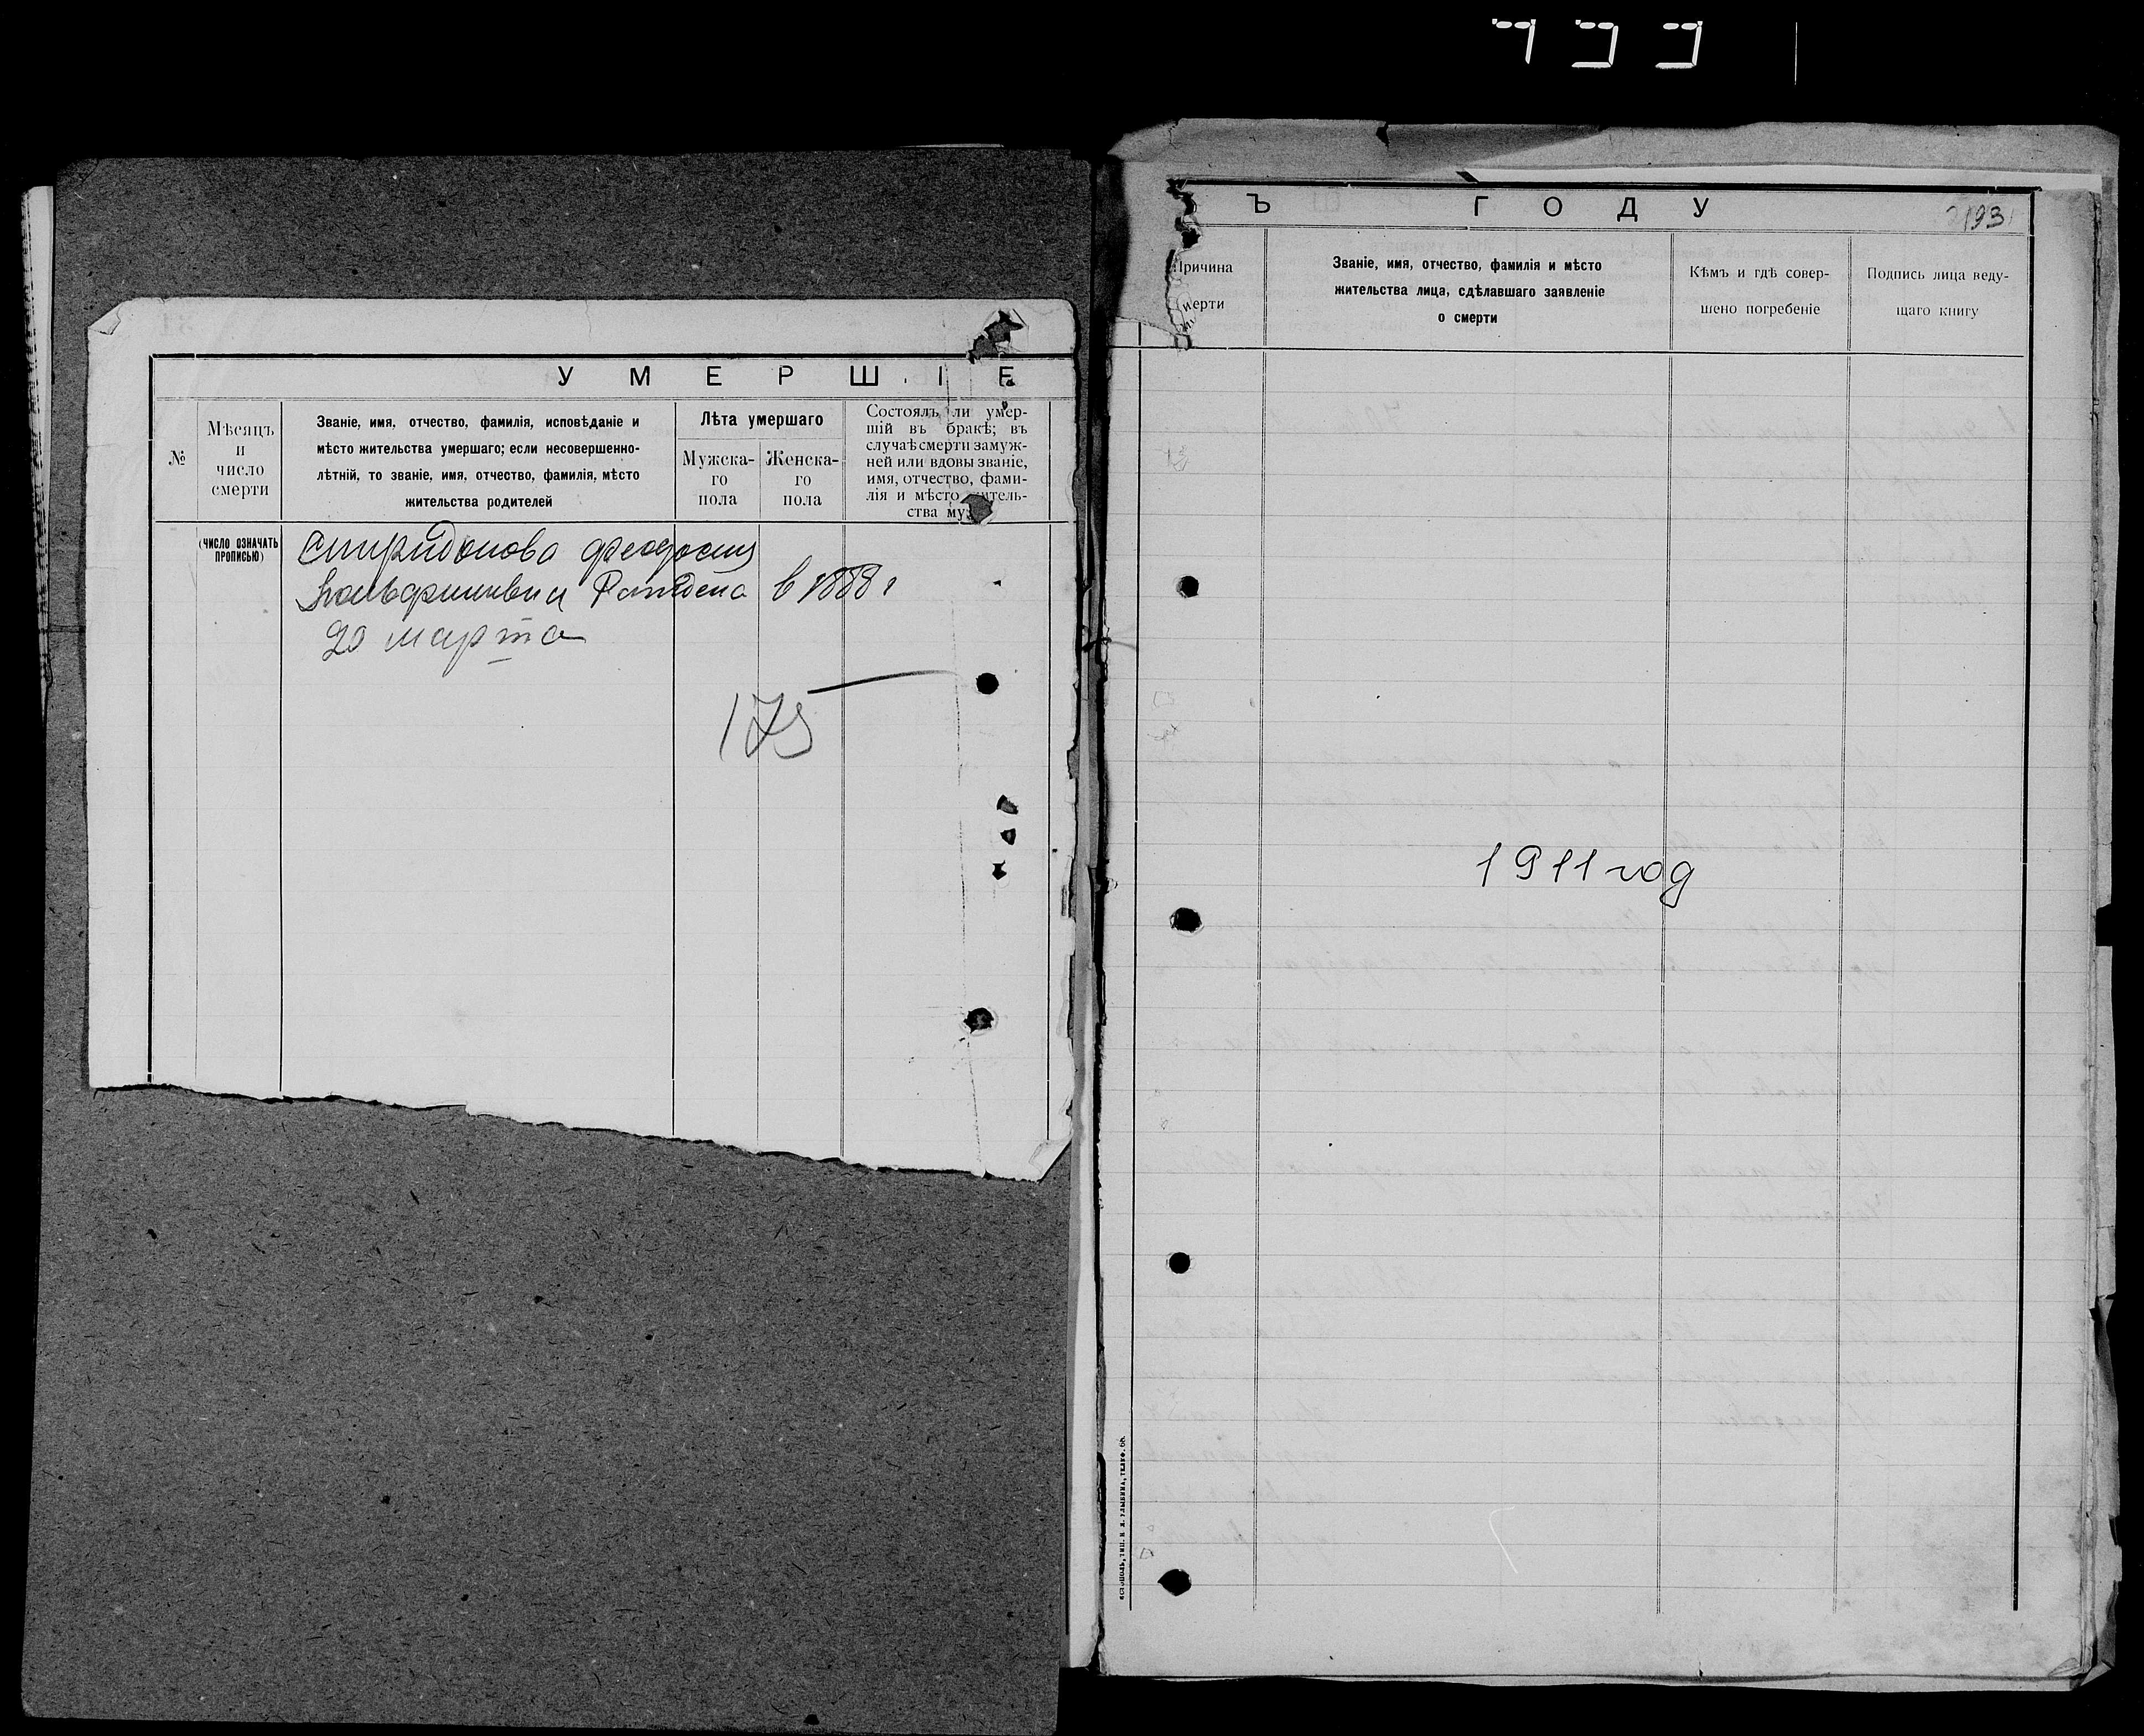 УМЕРШІЕ
№
Мѣсяцъ
и
число
смерти
Званіе, имя, отчество, фамилія, исповѣданіе и
мѣсто жительства умершаго; если несовершенно-
лѣтній, то званіе, имя, отчество, фамилія, мѣсто
жительства родителей
Лѣта умершаго
Мужска-
го
пола
Женска-
го
пола
Состоялъ ли умер-
шій въ бракѣ; въ
случаѣ смерти замуж-
ней или вдовы званіе,
имя, отчество, фами-
лія и мѣсто житель-
ства му
(ЧИСЛО ОЗНАЧАТЬ
ПРОПИСЬЮ)
Спиридонова Феодосия
в 1888 г
20 марта
175
Ъ ГОДУ
193
Причина
мерти
Званіе, имя, отчество, фамилія и мѣсто
жительства лица, сдѣлавшаго заявленіе
о смерти
Кѣмъ и гдѣ совер-
шено погребеніе
Подпись лица веду-
щаго книгу
1911 год